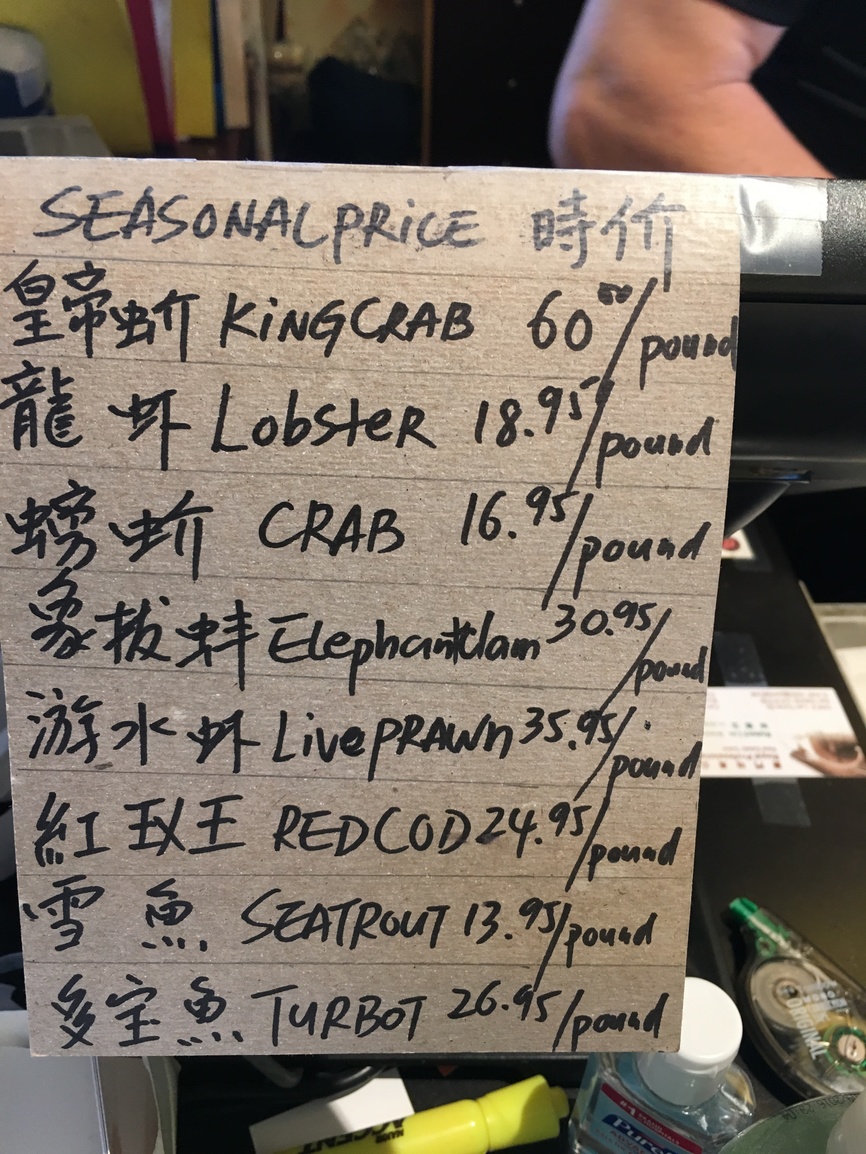 SEASONAL PRICE 時价
皇帝蚧 KiNG CRAB 60.00/pound
龍虾 LobsteR 18.95/pound
螃蚧 CRAB 16.95/pound
象拔蚌 Elephant clam 30.95/pound
游水虾 Live PRAWn 35.95/pound
紅玉王 RED COD 24.95/pound
雪魚 SEATROUT 13.95/pound
多宝魚 TURBOT 26.95/pound
ACCENT
Purell